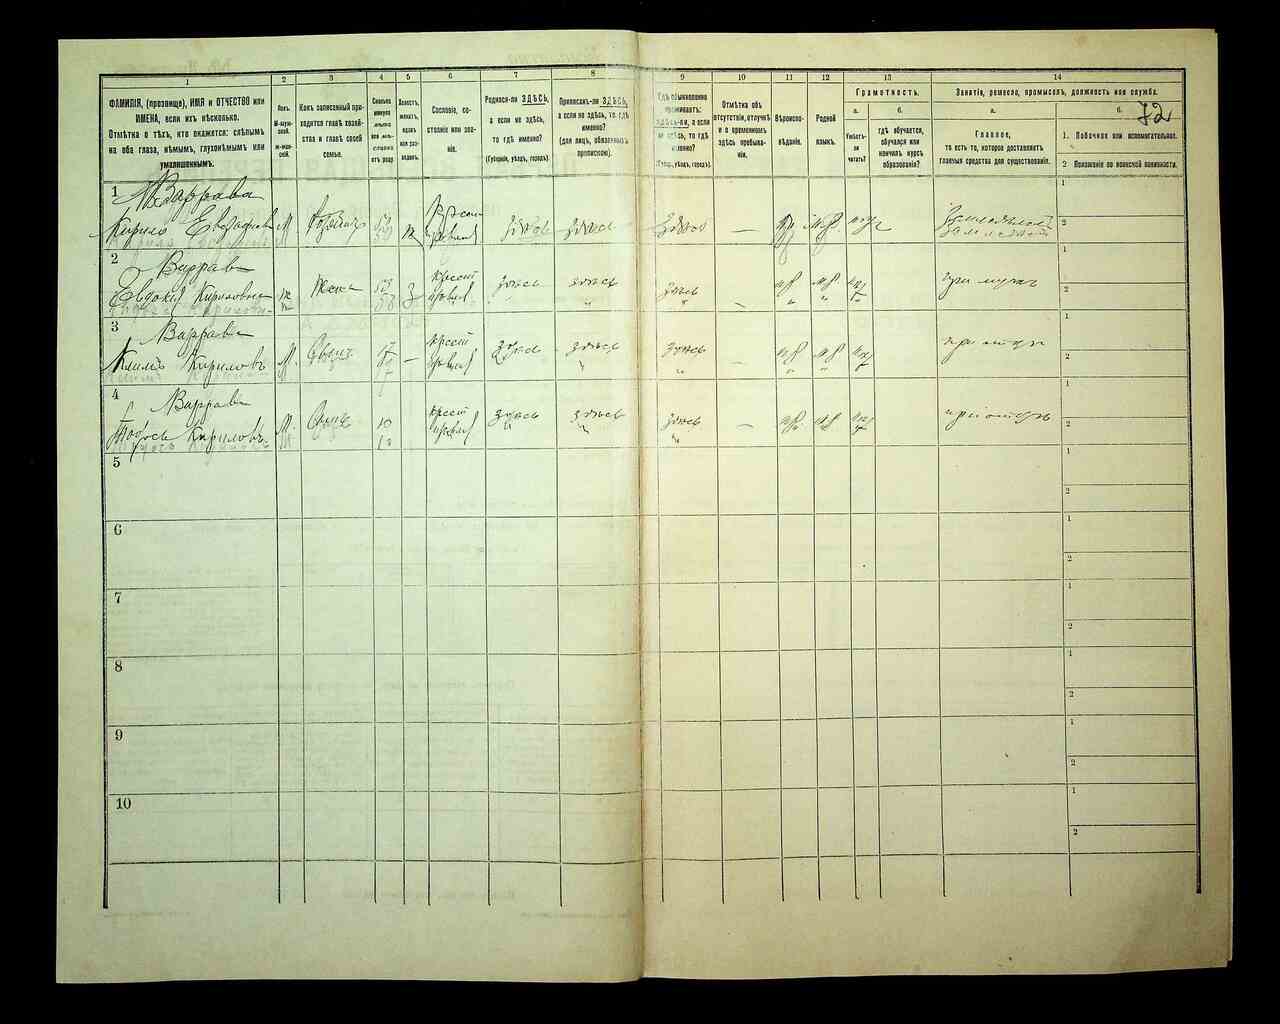 1 2 3 4 5 6 7 8 9 10 11 12 13 14
ФАМИЛІЯ, (прозвище), ИМЯ и ОТЧЕСТВО или
ИМЕНА, если ихъ нѣсколько.
Отмѣтка о тѣхъ, кто окажется: слѣпымъ
на оба глаза, нѣмымъ, глухонѣмымъ или
умалишеннымъ.
Полъ.
М-муж-
ской.
Ж-жен-
скій.
Какъ записанный при-
ходится главѣ хозяй-
ства и главѣ своей
семьи.
Сколько
минуло
лѣтъ
или мѣ-
сяцевъ
отъ роду.
Холостъ,
женатъ,
вдовъ
или раз-
веденъ.
Сословіе, со-
стояніе или зва-
ніе.
Родился-ли ЗДѢСЬ,
а если не здѣсь,
то гдѣ именно?
(Губернія, уѣздъ, городъ).
Приписанъ-ли ЗДѢСЬ,
а если не здѣсь, то гдѣ
именно?
(для лицъ, обязанныхъ
припискою).
Гдѣ обыкновенно
проживаетъ:
здѣсь-ли, а если
не здѣсь, то гдѣ
именно?
(Губерн., уѣздъ, городъ).
Отмѣтка объ
отсутствіи, отлучкѣ
и о временномъ
здѣсь пребыва-
ніи.
Вѣроиспо-
вѣданіе.
Родной
языкъ.
Грамотность.
а. б.
Умѣетъ-
ли
читать?
гдѣ обучается,
обучался или
кончилъ курсъ
образованія?
Занятіе, ремесло, промыселъ, должность или служба.
а. б. 72
Главное,
то есть то, которое доставляетъ
главныя средства для существованія.
1. Побочное или вспомогательное.
2 Положеніе по воинской повинности.
1 Варрава 1
Кирило М. здѣсь здѣсь здѣсь — 2
2 Варрава 1
Евдокія Кириловна Жена 53 3 крест здѣсь здѣсь здѣсь при мужѣ 2
3 Варрава 1
Климъ Кириловъ М. Сынъ 17 — крест здѣсь здѣсь здѣсь при отцѣ 2
4 Варрава 1
Кириловъ М. Сынъ 10 крест здѣсь здѣсь здѣсь — при отцѣ 2
5 1
2
6 1
2
7 1
2
8 1
2
9 1
2
10 1
2